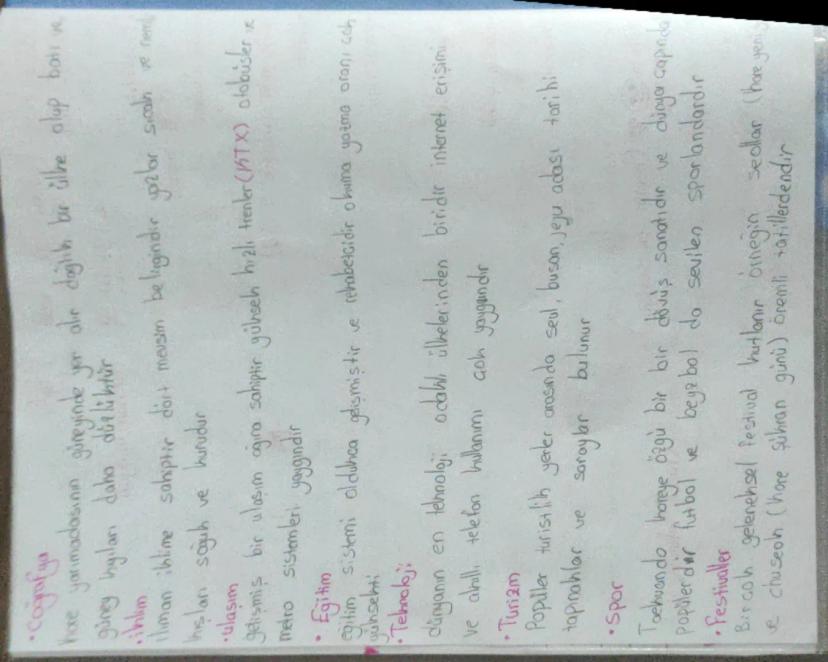 • Coğrafya
kore yarımadasının güneyinde yer alır dağlık bir ülke olup batı ve
güney kıyıları daha düzlüktür
• iklim
ılıman iklime sahiptir dört mevsim belirgindir yazlar sıcak ve nemli
kışları soğuk ve kurudur
• ulaşım
gelişmiş bir ulaşım ağına sahiptir yüksek hızlı trenler (KTX) otobüsler ve
metro sistemleri yaygındır
• Eğitim
eğitim sistemi oldukca gelişmiştir ve rekabetcidir okuma yazma oranı çok
yüksekti
• Teknoloji
dünyanın en teknoloji odaklı ülkelerinden biridir internet erişimi
ve akıllı telefon kullanımı çok yaygındır
• Turizm
Popüler turistik yerler arasında seul, busan, jeju adası tarihi
tapınaklar ve saraylar bulunur
• Spor
Taekwondo koreye özgü bir bir dövüş sanatıdır ve dünya çapında
popülerdir futbol ve beyzbol da sevilen sporlandardır
• Festivaller
Bir cok geleneksel festival kutlanır örneğin seollar (kore yeni
ve chuseok (kore şükran günü) önemli tatillerdendir